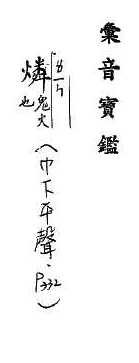 彙音寶鑑
燐鬼火也（巾下平聲．P332）